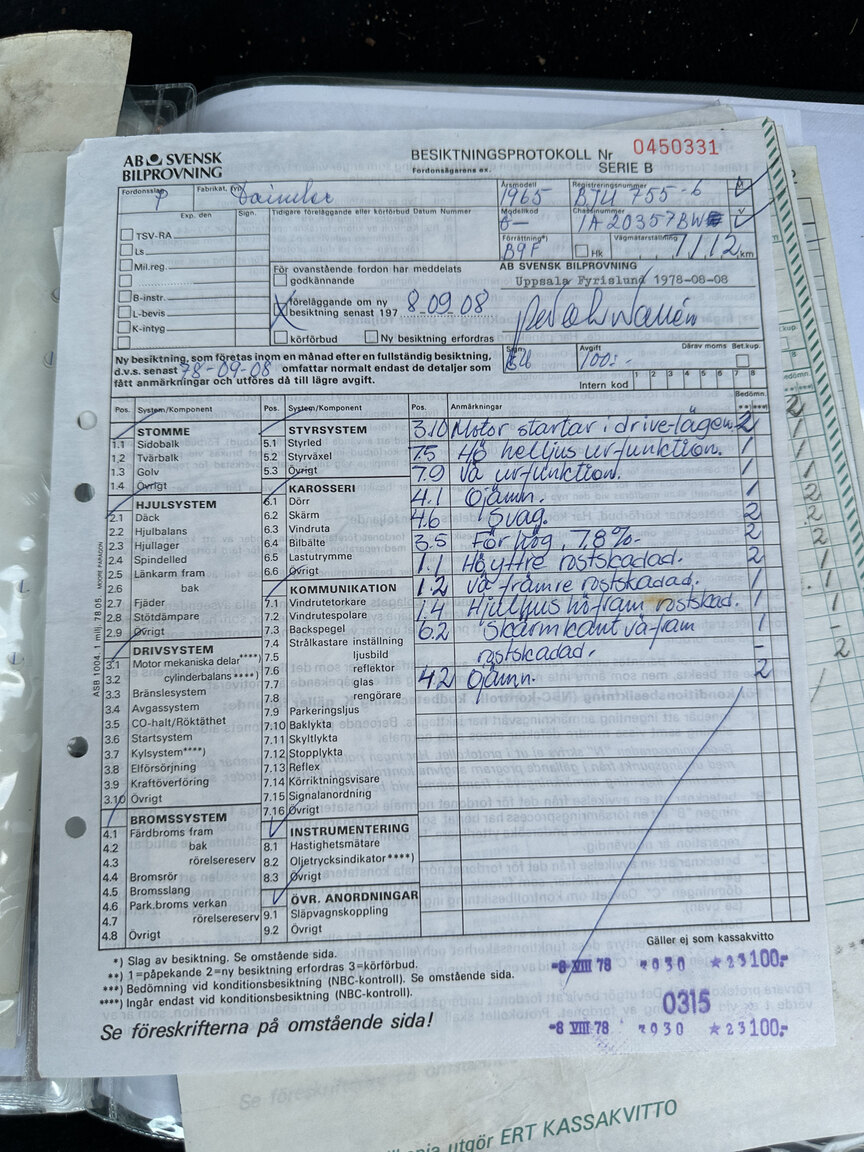 AB SVENSK
BILPROVNING
BESIKTNINGSPROTOKOLL Nr 0450331
Fordonsägarens ex. SERIE B
Fordonsslag P
Fabrikat, typ Daimler
Årsmodell 1965
Registreringsnummer BJU 755-6
Exp. den Sign.
Tidigare föreläggande eller körförbud Datum Nummer
Modellkod 6-
Chassinummer 1A20357BW
TSV-RA
Ls
Mil.reg.
Förrättning*) B9F
Hk
Vägmätarställning 7112 km
B-instr.
L-bevis
K-intyg
För ovanstående fordon har meddelats
godkännande
föreläggande om ny
besiktning senast 197 8-09-08
körförbud
Ny besiktning erfordras
AB SVENSK BILPROVNING
Uppsala Fyrislund 1978-08-08
Ny besiktning, som företas inom en månad efter en fullständig besiktning,
d.v.s. senast 78-09-08 omfattar normalt endast de detaljer som
fått anmärkningar och utföres då till lägre avgift.
Sign.
Avgift 100:-
Därav moms Bet.kup.
Intern kod 1 2 3 4 5 6 7 8
Pos. System/Komponent
STOMME
1.1 Sidobalk
1.2 Tvärbalk
1.3 Golv
1.4 Övrigt
HJULSYSTEM
2.1 Däck
2.2 Hjulbalans
2.3 Hjullager
2.4 Spindelled
2.5 Länkarm fram
2.6 bak
2.7 Fjäder
2.8 Stötdämpare
2.9 Övrigt
DRIVSYSTEM
3.1 Motor mekaniska delar****)
3.2 cylinderbalans****)
3.3 Bränslesystem
3.4 Avgassystem
3.5 CO-halt/Röktäthet
3.6 Startsystem
3.7 Kylsystem****)
3.8 Elförsörjning
3.9 Kraftöverföring
3.10 Övrigt
BROMSSYSTEM
4.1 Färdbroms fram
4.2 bak
4.3 rörelsereserv
4.4 Bromsrör
4.5 Bromsslang
4.6 Park.broms verkan
4.7 rörelsereserv
4.8 Övrigt
Pos. System/Komponent
STYRSYSTEM
5.1 Styrled
5.2 Styrväxel
5.3 Övrigt
KAROSSERI
6.1 Dörr
6.2 Skärm
6.3 Vindruta
6.4 Bilbälte
6.5 Lastutrymme
6.6 Övrigt
KOMMUNIKATION
7.1 Vindrutetorkare
7.2 Vindrutespolare
7.3 Backspegel
7.4 Strålkastare inställning
7.5 ljusbild
7.6 reflektor
7.7 glas
7.8 rengörare
7.9 Parkeringsljus
7.10 Baklykta
7.11 Skyltlykta
7.12 Stopplykta
7.13 Reflex
7.14 Körriktningsvisare
7.15 Signalanordning
7.16 Övrigt
INSTRUMENTERING
8.1 Hastighetsmätare
8.2 Oljetrycksindikator****)
8.3 Övrigt
ÖVR. ANORDNINGAR
9.1 Släpvagnskoppling
9.2 Övrigt
Pos. Anmärkningar Bedömn.
**) ***)
3.10 Motor startar i drive-lägen. 2
7.5 Hö helljus ur funktion. 1
7.9 Vä ur funktion. 1
4.1 Ojämn. 2
4.6 Svag. 2
3.5 För hög, 7,8%. 2
1.1 Hö yttre rostskadad. 2
1.2 Vä främre rostskadad. 1
1.4 Hjulhus hö fram rostskad. 1
6.2 Skärmkant vä fram 1
rostskadad. -
4.2 Ojämn. 2
ASB 1004. 1 milj. 78.05. MOORE PARAGON
*) Slag av besiktning. Se omstående sida.
**) 1=påpekande 2=ny besiktning erfordras 3=körförbud.
***) Bedömning vid konditionsbesiktning (NBC-kontroll). Se omstående sida.
****) Ingår endast vid konditionsbesiktning (NBC-kontroll).
Se föreskrifterna på omstående sida!
Gäller ej som kassakvitto
-8 VIII 78 *030 *23100:-
0315
-8 VIII 78 *030 *23100:-
utgör ERT KASSAKVITTO